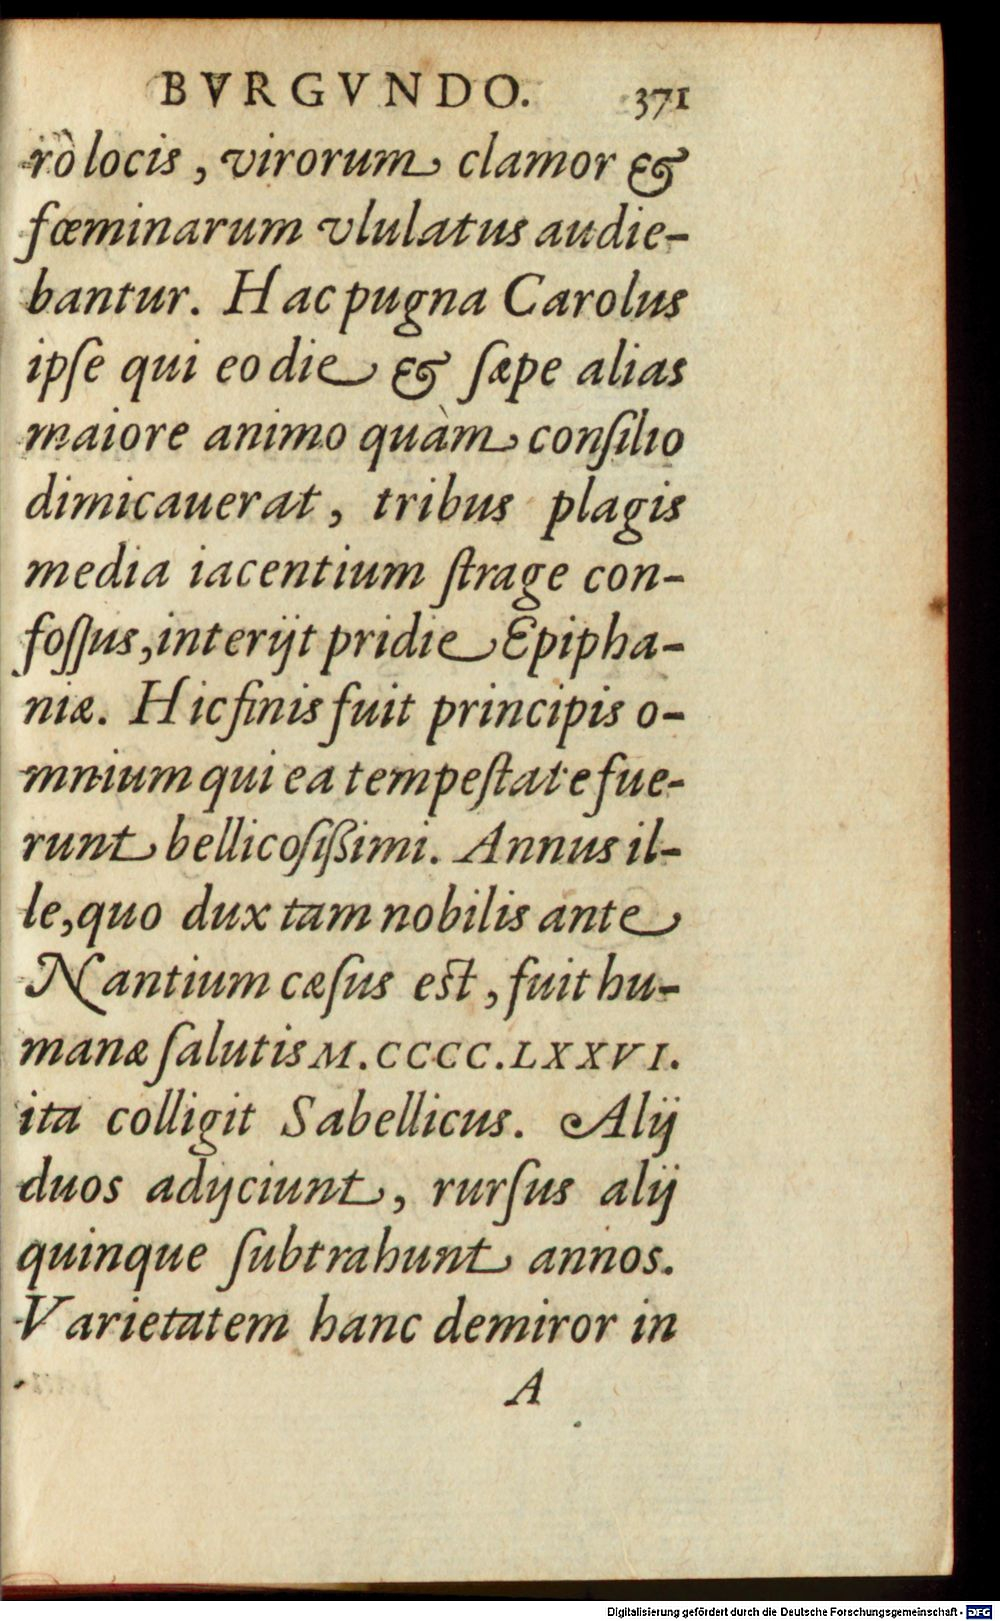 BVRGVNDO. 371
rò locis, virorum clamor &
fœminarum vlulatus audie-
bantur. Hac pugna Carolus
ipſe qui eo die & ſæpe alias
maiore animo quàm conſilio
dimicauerat, tribus plagis
media iacentium ſtrage con-
foſſus, interijt pridie Epipha-
niæ. Hic finis fuit principis o-
mnium qui ea tempeſtate fue-
runt bellicoſiſſimi. Annus il-
le, quo dux tam nobilis ante
Nantium cæſus eſt, fuit hu-
manæ ſalutis M.CCCC.LXXVI.
ita colligit Sabellicus. Alij
duos adijciunt, rurſus alij
quinque ſubtrahunt annos.
Varietatem hanc demiror in
A
Digitalisierung gefördert durch die Deutsche Forschungsgemeinschaft - DFG